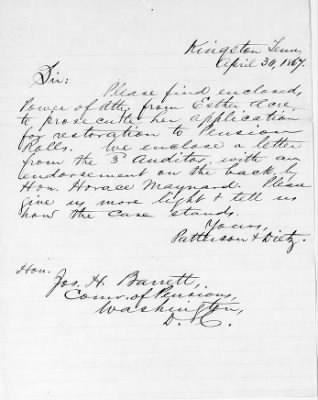 Kingston Tenn.
April 30, 1867.
Sir:
Please find enclosed,
Power of Atty. from Esther Acre,
to prosecute her application
for restoration to Pension
Rolls. We enclose a letter
from the 3d Auditor, with an
endorsement on the back, by
Hon. Horace Maynard. Please
give us more light & tell us
how the case stands.
Yours,
Patterson & Dietz.
Hon.
Jos. H. Barrett,
Comr. of Pensions,
Washington,
D. C.